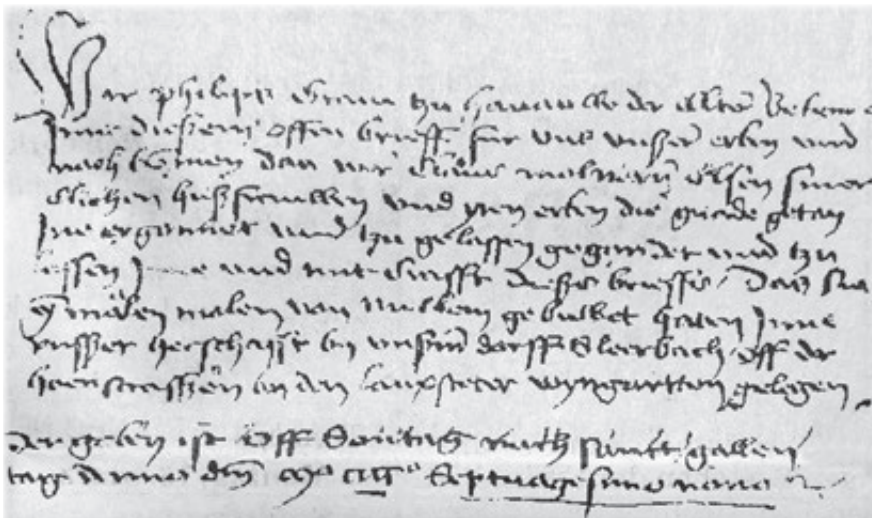 Wir philips Grave tzu hanauwe der elter Bekenne
Inne dieszem offen brieff fur uns unszer erben und
nachkomen das wir
elichen huszfrauwen und yren erben die gnade getan
Ine ergonnet und tzu gelassen gegonnet und tzu
lassen Ine und mit crafft diesses brieffs, das sie
malen von nuwem gebuwet haben Inne
unszer herschafft by unserm dorff Steirbach off der
hoen straszen an den wyngartten gelegen.
der geben ist Off Sontag nach sanct gallen
tage Anno dm̄ Mo cccco Septuagesimo nono